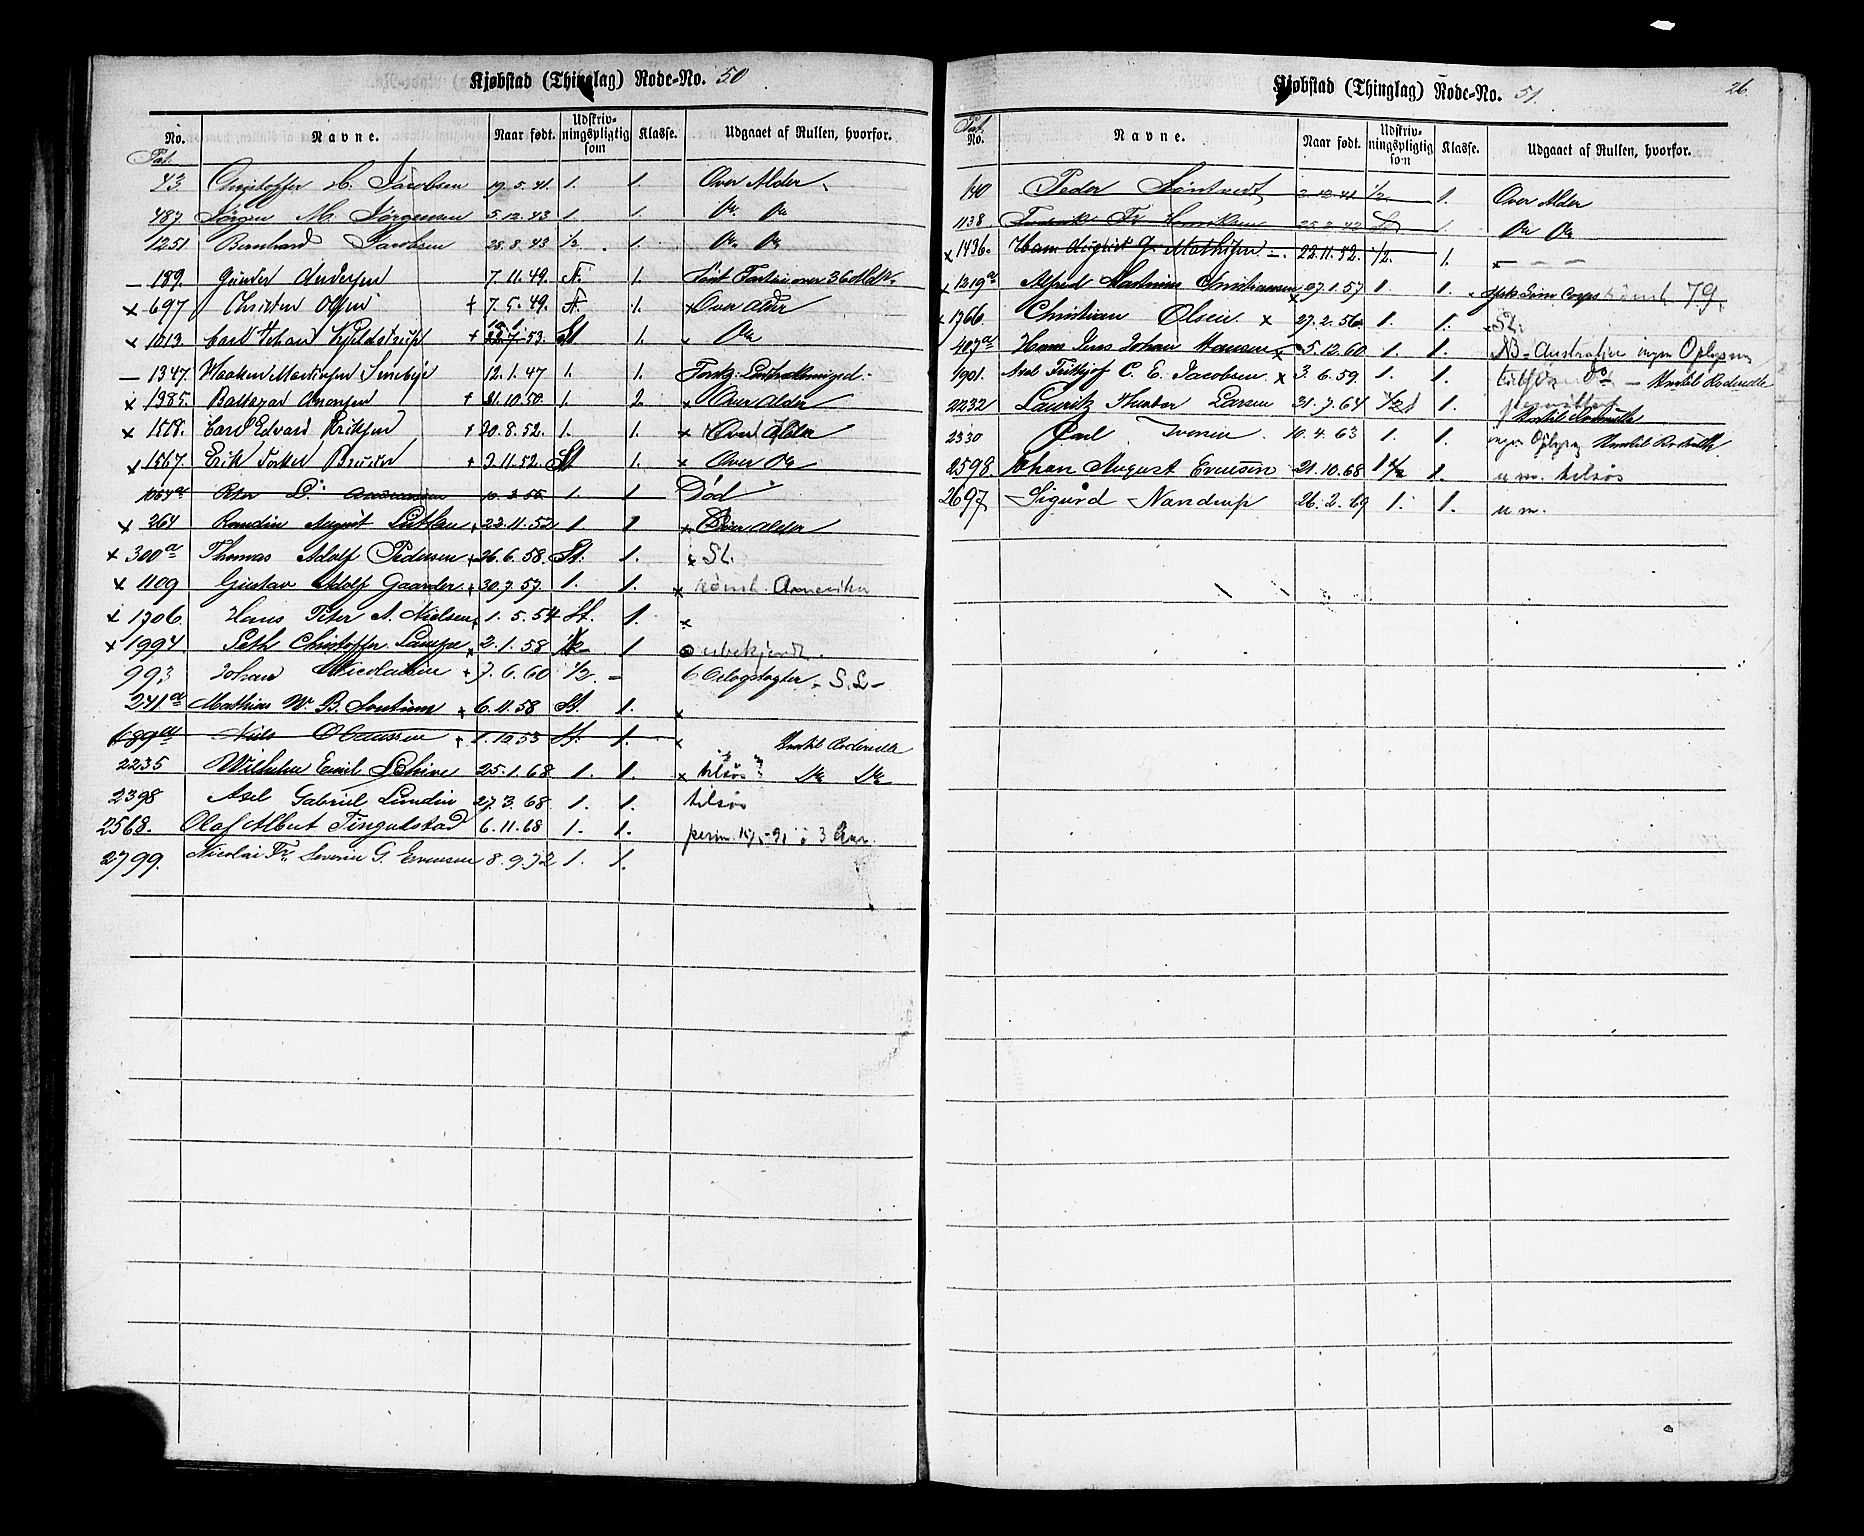 Kjøbstad (Thinglag) Rode-No. 50
No. Navne. Naar født. Udskriv-ningspligtig som Klasse. Udgaaet af Rullen, hvorfor.
Pat.
43 Christoffer H. Jacobsen 19.5.41. 1. 1. Over Alder
487 Jørgen M. Jørgensen 5.12.43 1. 1. Do Do
1251 Bernhard Jacobsen 25.8.43 1/2 1. Do Do
189. Gunder Andersen 7.11.49. St. 1.
x 697 Christen Olsen + 7.5.49. St. 1. x Over Alder
x 1013 Carl Johan Kjeldstrup + 53. St 1. x Do
1347. Haaken Martinsen 12.1.47 1. 1.
x 1385. Baltezar Anensen + 31.10.50. 1. 2. x Over alder
x 1518. Carl Edvard Eriksen + 20.8.52. 1. 1. x Over Alder
x 1567. Erik + 3.11.52. St 1. x Over Do
1054a Peter D. 10.3.55. 1. 1 Død
x 264 August + 23.11.52 1 1 x Over alder
x 300a Thomas Adolf Pedersen + 26.6.58. St. 1. x SL.
x 1109 Gustav Adolf Gaarder + 30.7.57. 1. 1. x Amerika
x 1706. Hans Peter A. Nielsen + 1.5.54 St. 1. x
x 1994. Seth Christoffer Lampe x 2.1.58 1 ubekjendt.
993 Johan Nicolaisen + 7.6.60 1/2. 6 Oclogstogter - S.L -
241a Mathias W. B. x 6.11.58 St. 1. x
689a Niels Claussen + 1.10.53 St. 1. x
2235 Wilhelm Emil Schive 25.1.68 1. 1. x tilsøs Do Do
2398 Axel Gabriel Lundin 27.3.68 1. 1. tilsøs
2568. Olaf Albert Tingulstad 6.11.68 1. 1. perm. 15/5-91 i 3 Aar.
2799. Nicolai Fr. Severin G. Evensen 8.9.72 1. 1.
26
Kjøbstad (Thinglag) Rode-No. 51.
Pat.
No. Navne. Naar født. Udskriv-ningspligtig som Klasse. Udgaaet af Rullen, hvorfor.
140 Peder 2.12.41 1/2. 1. Over Alder
1138 Fredrik Fr. Henriksen 25.2.42 St 1. Do Do
x 1436. Hans August G. Mathisen 22.11.52. 1/2. 1. - - -
x 1219a Alfred Martinius Christiansen x 27.1.57 1. 1. 79.
x 1766 Christian Olsen x 27.2.56 1. 1. x SL.
407a Hans Jens Johan Hansen x 5.12.60 1. 1. NB - Australien ingen Oplysn
1901. Axel Fridtjof C. E. Jacobsen x 3.6.59. 1. 1.
2232 Lauritz Larsen 31.7.64 1/2 1.
2330 Carl Iversen 10.4.63 1. 1. ingen Oplysn
2598. Johan August Evensen 21.10.68 1. u m. tilsøs
2697 Sigurd Nandrup 26.2.69 1. 1. u m.